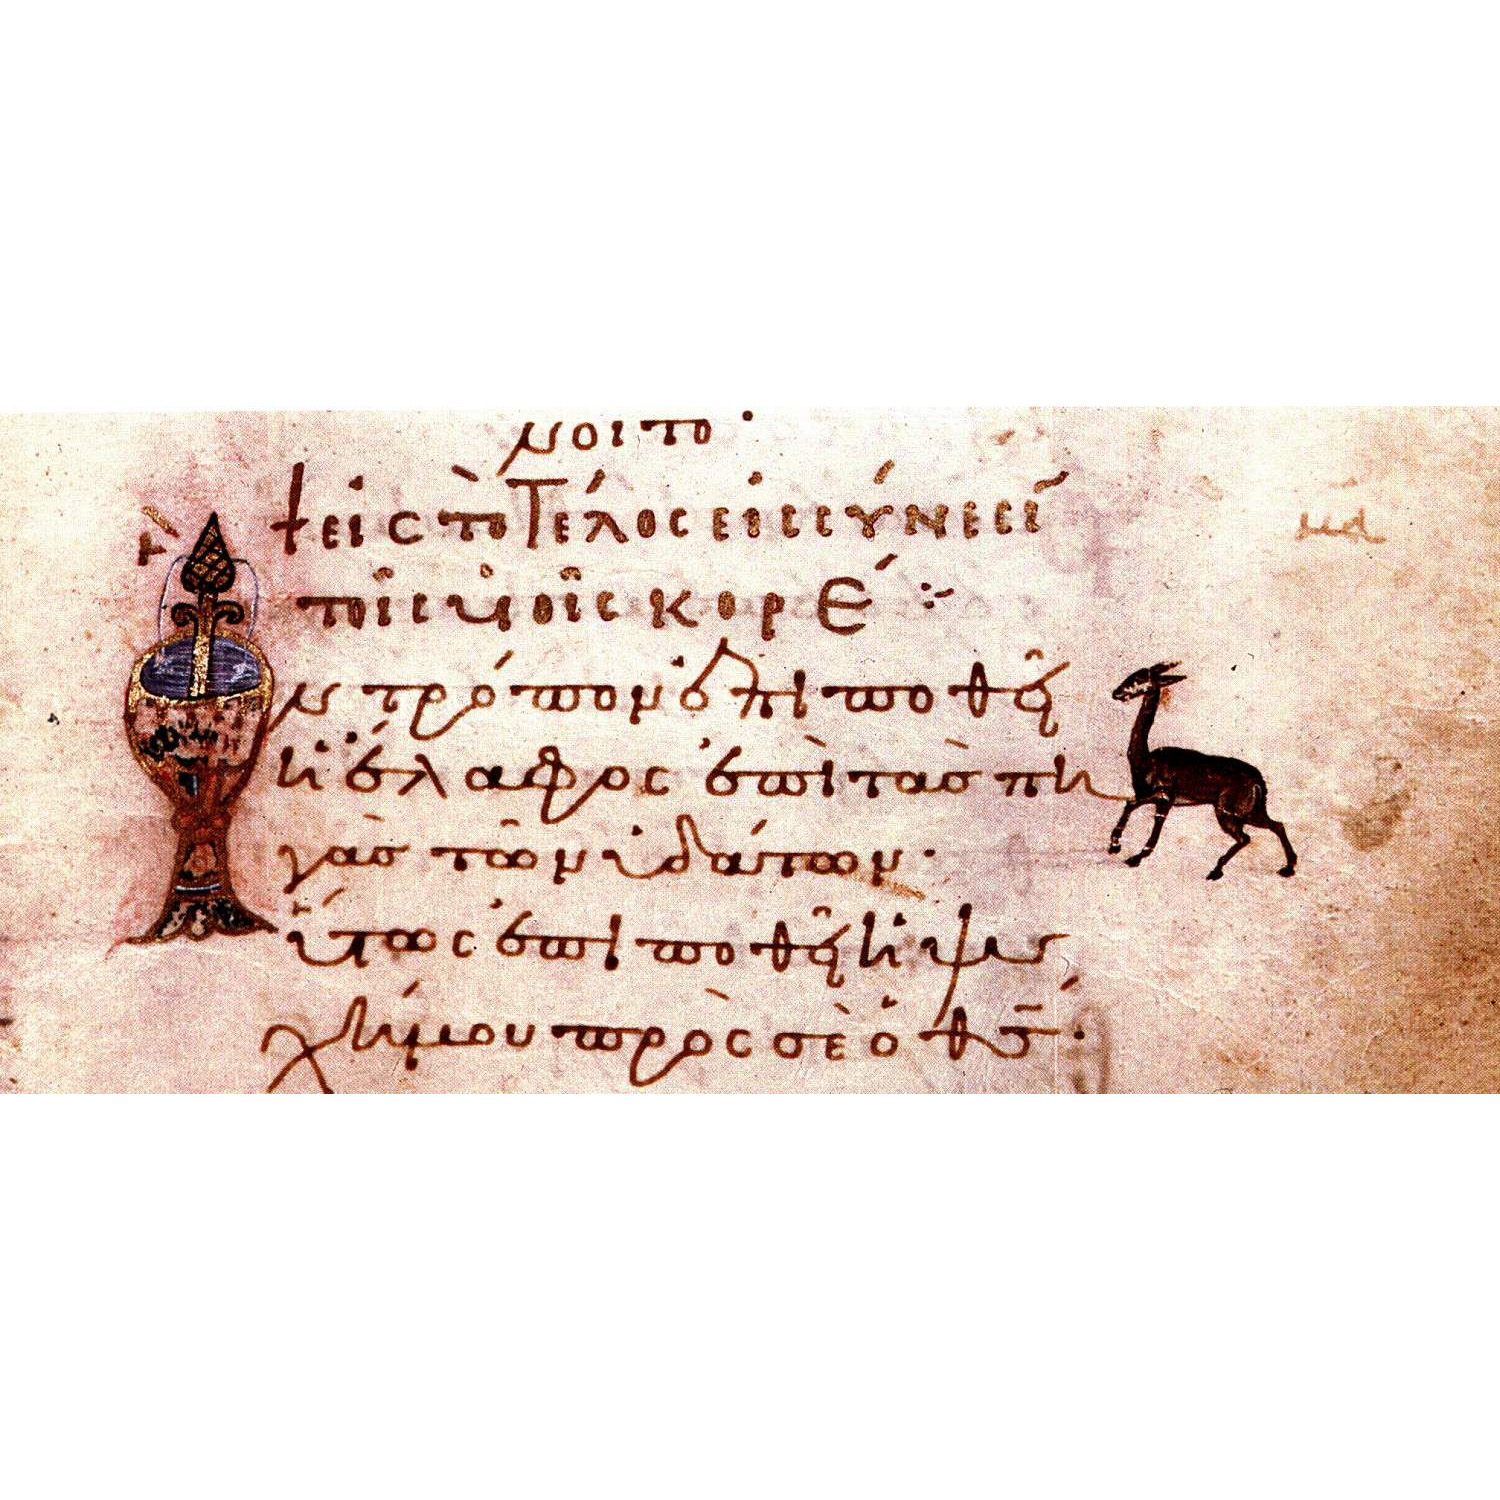 νοιτο·
+ εἰς τὸ Τέλος εἰς σύνεσι
τοῖς υἱοῖς Κορέ ⁘
ν τρόπον ἐπιποθεῖ
ἡ ἔλαφος ἐπὶ τὰς πη
γὰς τῶν ὑδάτων·
οὕτως ἐπιποθεῖ ἡ ψυ
χή μου πρὸς σὲ ὁ θς̅·
μα